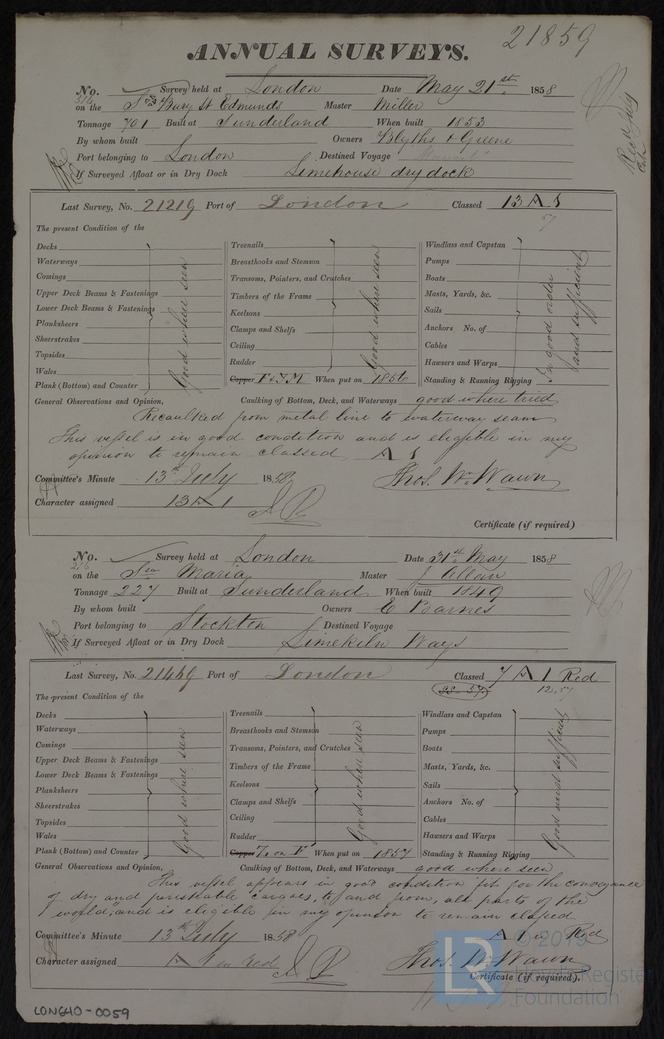 21859
ANNUAL SURVEYS.
No. Survey held at London Date May 21st 1858
on the Bury St Edmunds Master Miller
Tonnage 701 Built at Sunderland When built 1853
By whom built Owners Blyths & Greene
Port belonging to London Destined Voyage
If Surveyed Afloat or in Dry Dock Limehouse dry dock
Last Survey, No. 21219 Port of London Classed 13 A 1
57
The present Condition of the
Decks
Waterways
Comings
Upper Deck Beams & Fastenings
Lower Deck Beams & Fastenings
Planksheers
Sheerstrakes
Topsides
Wales
Plank (Bottom) and Counter
Good where seen
Treenails
Breasthooks and Stemson
Transoms, Pointers, and Crutches
Timbers of the Frame
Keelsons
Clamps and Shelfs
Ceiling
Rudder
Copper F & YM When put on 1856
Good where seen
Windlass and Capstan
Pumps
Boats
Masts, Yards, &c.
Sails
Anchors No. of
Cables
Hawsers and Warps
Standing & Running Rigging
In good order
and sufficient
General Observations and Opinion, Caulking of Bottom, Deck, and Waterways good where tried
Recaulked from metal line to waterway seam
This vessel is in good condition and is eligible in my
opinion to remain classed A 1
Committee's Minute 13th July 1858 Thos. W. Wawn
Character assigned 13 A 1
Certificate (if required)
No. Survey held at London Date 31st May 1858
216
on the Sr Maria Master J Allan
Tonnage 227 Built at Sunderland When built 1849
By whom built Owners E Barnes
Port belonging to Stockton Destined Voyage
If Surveyed Afloat or in Dry Dock Limekiln Ways
Last Survey, No. 21449 Port of London Classed 7 A 1 Red
12.57
The present Condition of the
Decks
Waterways
Comings
Upper Deck Beams & Fastenings
Lower Deck Beams & Fastenings
Planksheers
Sheerstrakes
Topsides
Wales
Plank (Bottom) and Counter
Good where seen
Treenails
Breasthooks and Stemson
Transoms, Pointers, and Crutches
Timbers of the Frame
Keelsons
Clamps and Shelfs
Ceiling
Rudder
Copper When put on 1857
Good where seen
Windlass and Capstan
Pumps
Boats
Masts, Yards, &c.
Sails
Anchors No. of
Cables
Hawsers and Warps
Standing & Running Rigging
Good and sufficient
General Observations and Opinion, Caulking of Bottom, Deck, and Waterways good where seen
This vessel appears in good condition fit for the conveyance
of dry and perishable cargoes, to, and from, all parts of the
world, and is eligible in my opinion to remain classed
A 1 in Red
Committee's Minute 13th July 1858
Character assigned A in Red Thos. W. Wawn
Certificate (if required).
LR © 2019
Lloyd's Register
Foundation
LON640-0059